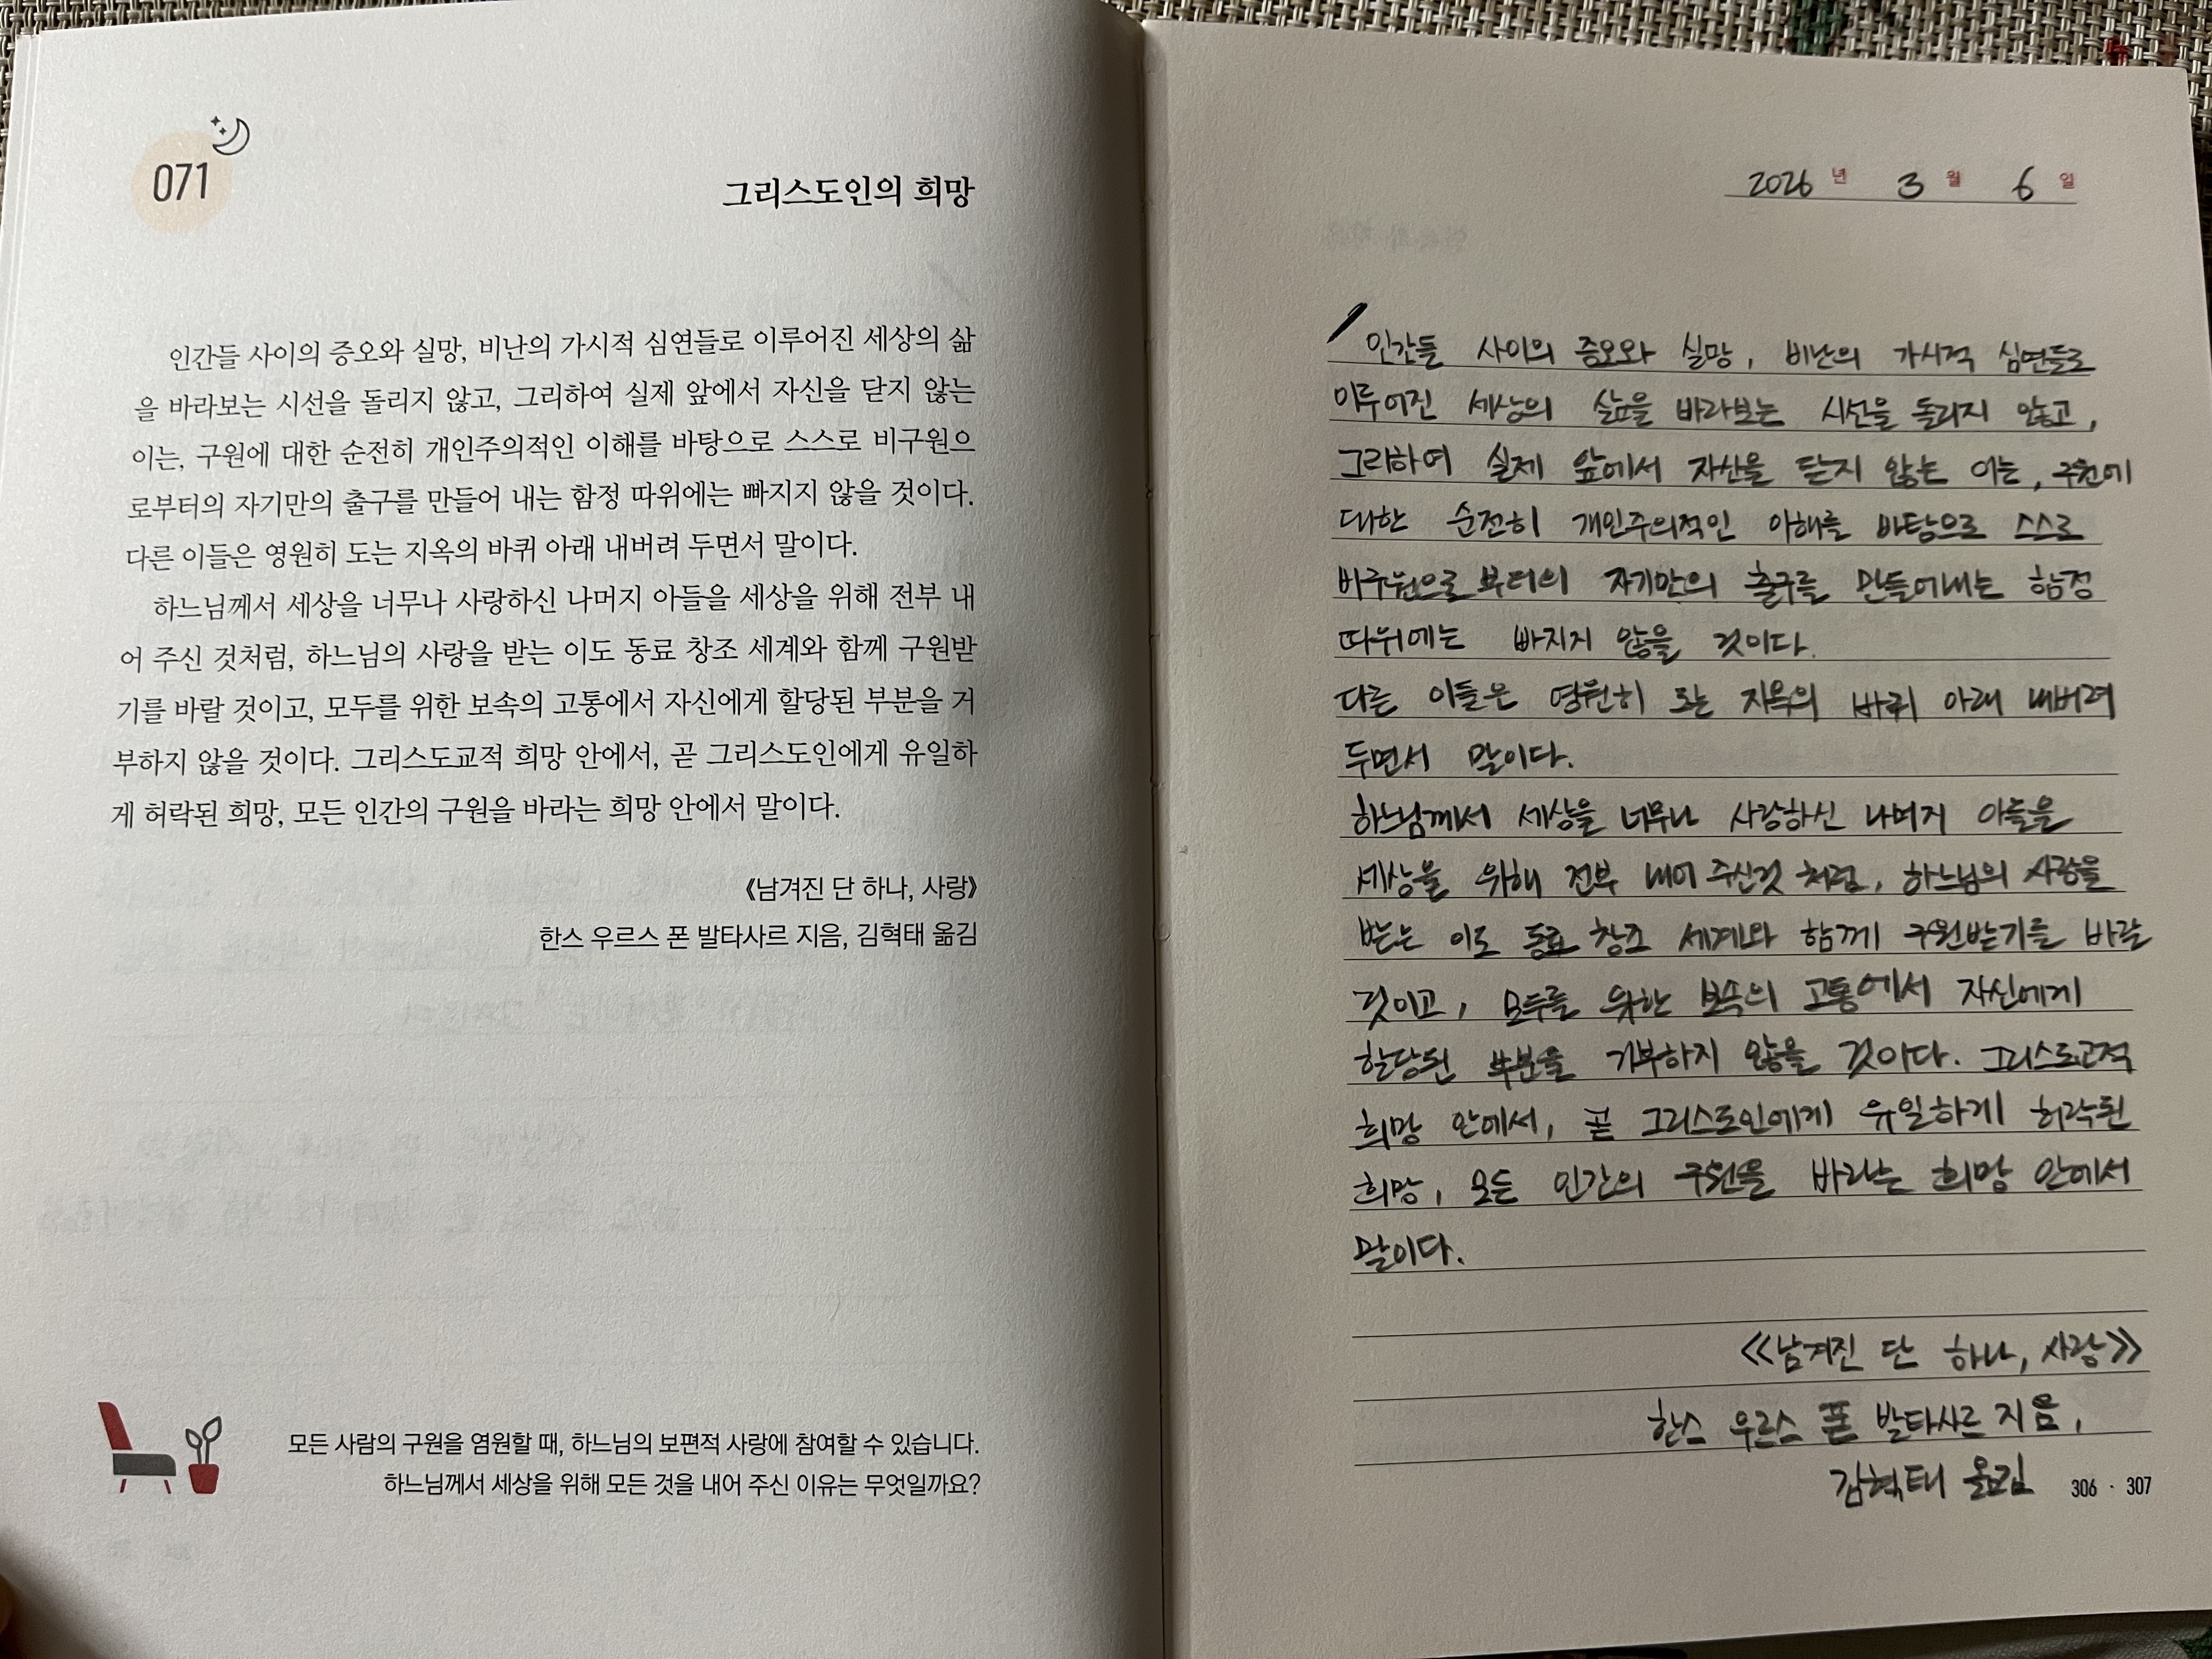 071
그리스도인의 희망
인간들 사이의 증오와 실망, 비난의 가시적 심연들로 이루어진 세상의 삶
을 바라보는 시선을 돌리지 않고, 그리하여 실제 앞에서 자신을 닫지 않는
이는, 구원에 대한 순전히 개인주의적인 이해를 바탕으로 스스로 비구원으
로부터의 자기만의 출구를 만들어 내는 함정 따위에는 빠지지 않을 것이다.
다른 이들은 영원히 도는 지옥의 바퀴 아래 내버려 두면서 말이다.
하느님께서 세상을 너무나 사랑하신 나머지 아들을 세상을 위해 전부 내
어 주신 것처럼, 하느님의 사랑을 받는 이도 동료 창조 세계와 함께 구원받
기를 바랄 것이고, 모두를 위한 보속의 고통에서 자신에게 할당된 부분을 거
부하지 않을 것이다. 그리스도교적 희망 안에서, 곧 그리스도인에게 유일하
게 허락된 희망, 모든 인간의 구원을 바라는 희망 안에서 말이다.
《남겨진 단 하나, 사랑》
한스 우르스 폰 발타사르 지음, 김혁태 옮김
모든 사람의 구원을 염원할 때, 하느님의 보편적 사랑에 참여할 수 있습니다.
하느님께서 세상을 위해 모든 것을 내어 주신 이유는 무엇일까요?
2026 년 3 월 6 일
인간들 사이의 증오와 실망, 비난의 가시적 심연들로
이루어진 세상의 삶을 바라보는 시선을 돌리지 않고,
그리하여 실제 앞에서 자신을 닫지 않는 이는, 구원에
대한 순전히 개인주의적인 이해를 바탕으로 스스로
비구원으로 부터의 자기만의 출구를 만들어내는 함정
따위에는 빠지지 않을 것이다.
다른 이들은 영원히 도는 지옥의 바퀴 아래 내버려
두면서 말이다.
하느님께서 세상을 너무나 사랑하신 나머지 아들을
세상을 위해 전부 내어 주신것 처럼, 하느님의 사랑을
받는 이도 동료 창조 세계와 함께 구원받기를 바랄
것이고, 모두를 위한 보속의 고통에서 자신에게
할당된 부분을 거부하지 않을 것이다. 그리스도교적
희망 안에서, 곧 그리스도인에게 유일하게 허락된
희망, 모든 인간의 구원을 바라는 희망 안에서
말이다.
《남겨진 단 하나, 사랑》
한스 우르스 폰 발타사르 지음,
김혁태 옮김
306 · 307